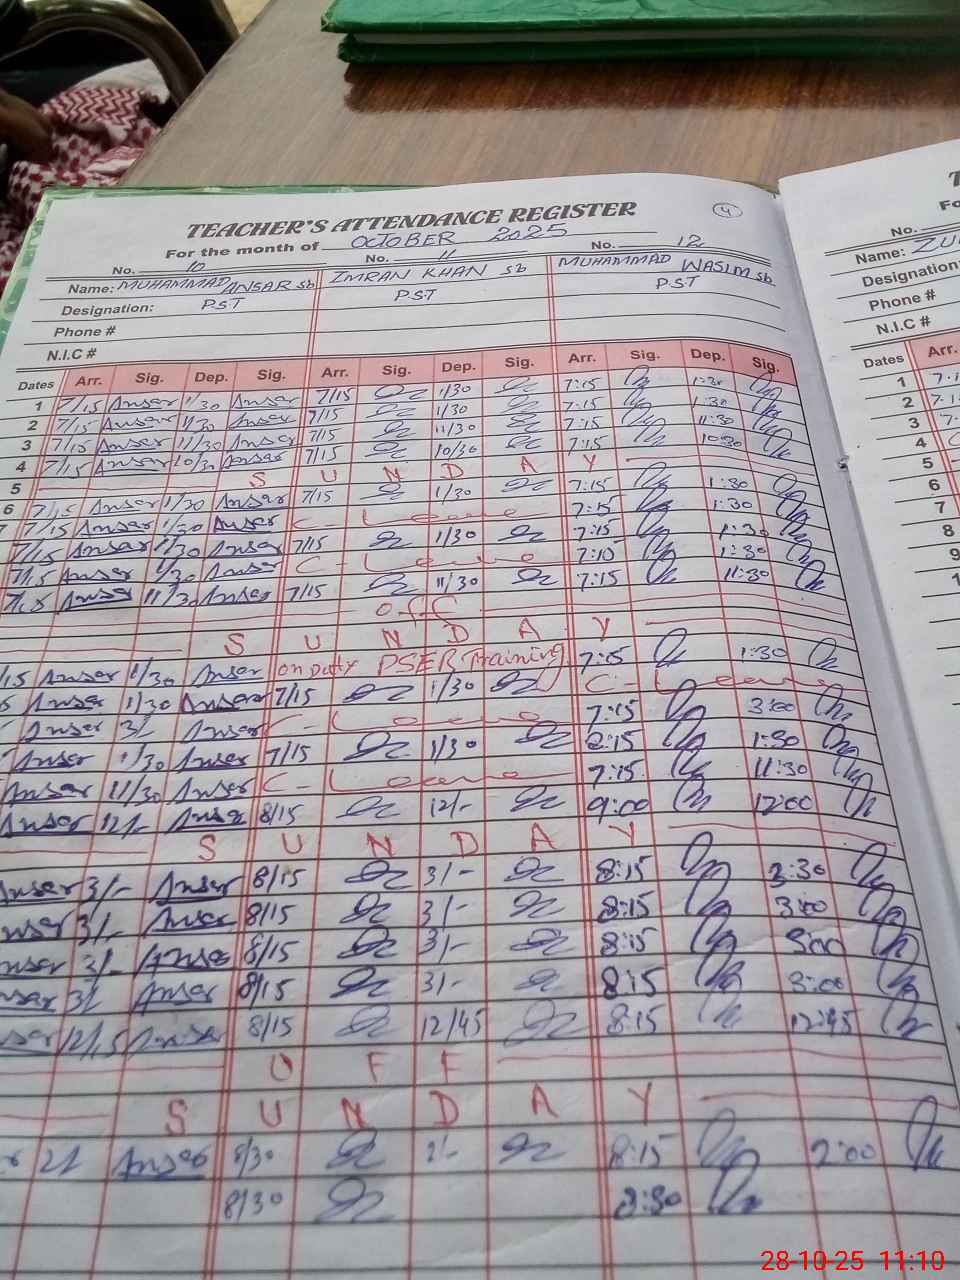 TEACHER'S ATTENDANCE REGISTER 4
For the month of OCTOBER 2025
No. 10 No. 11 No. 12
Name: MUHAMMAD ANSAR sb IMRAN KHAN sb MUHAMMAD WASIM sb
Designation: PST PST PST
Phone #
N.I.C #
Dates Arr. Sig. Dep. Sig. Arr. Sig. Dep. Sig. Arr. Sig. Dep. Sig.
1 7/15 Ansar 1/30 Ansar 7/15 1/30 7:15 1:30
2 7/15 Ansar 1/30 Ansar 7/15 1/30 7:15 1:30
3 7/15 Ansar 11/30 Ansar 7/15 11/30 7:15 11:30
4 7/15 Ansar 10/30 Ansar 7/15 10/30 7:15 10:30
5 S U N D A Y
6 7/15 Ansar 1/30 Ansar 7/15 1/30 7:15 1:30
7 7/15 Ansar 1/30 Ansar C-Leave 7:15 1:30
7/15 Ansar 1/30 Ansar 7/15 1/30 7:15 1:30
7/15 Ansar 1/30 Ansar C-Leave 7:10 1:30
7/15 Ansar 11/30 Ansar 7/15 11/30 7:15 11:30
off
S U N D A Y
Ansar 1/30 Ansar on duty PSER Training 7:15 1:30
Ansar 1/30 Ansar 7/15 1/30 C-Leave
Ansar 3/- Ansar C-Leave 7:15 3:00
Ansar 1/30 Ansar 7/15 1/30 8:15 1:30
Ansar 11/30 Ansar C-Leave 7:15 11:30
Ansar 12/- Ansar 8/15 12/- 9:00 12:00
S U N D A Y
Ansar 3/- Ansar 8/15 3/- 8:15 3:30
3/- Ansar 8/15 3/- 8:15 3:00
3/- Ansar 8/15 3/- 8:15 3:00
3/- Ansar 8/15 3/- 8:15 3:00
12/15 Ansar 8/15 12/45 8:15 12:45
O F F
S U N D A Y
2/- Ansar 8/30 2/- 8:15 2:00
8/30 8:30
No.
Name:
Designation:
Phone #
N.I.C #
Dates Arr.
1
2
3
4
5
6
7
8
28-10-25 11:10